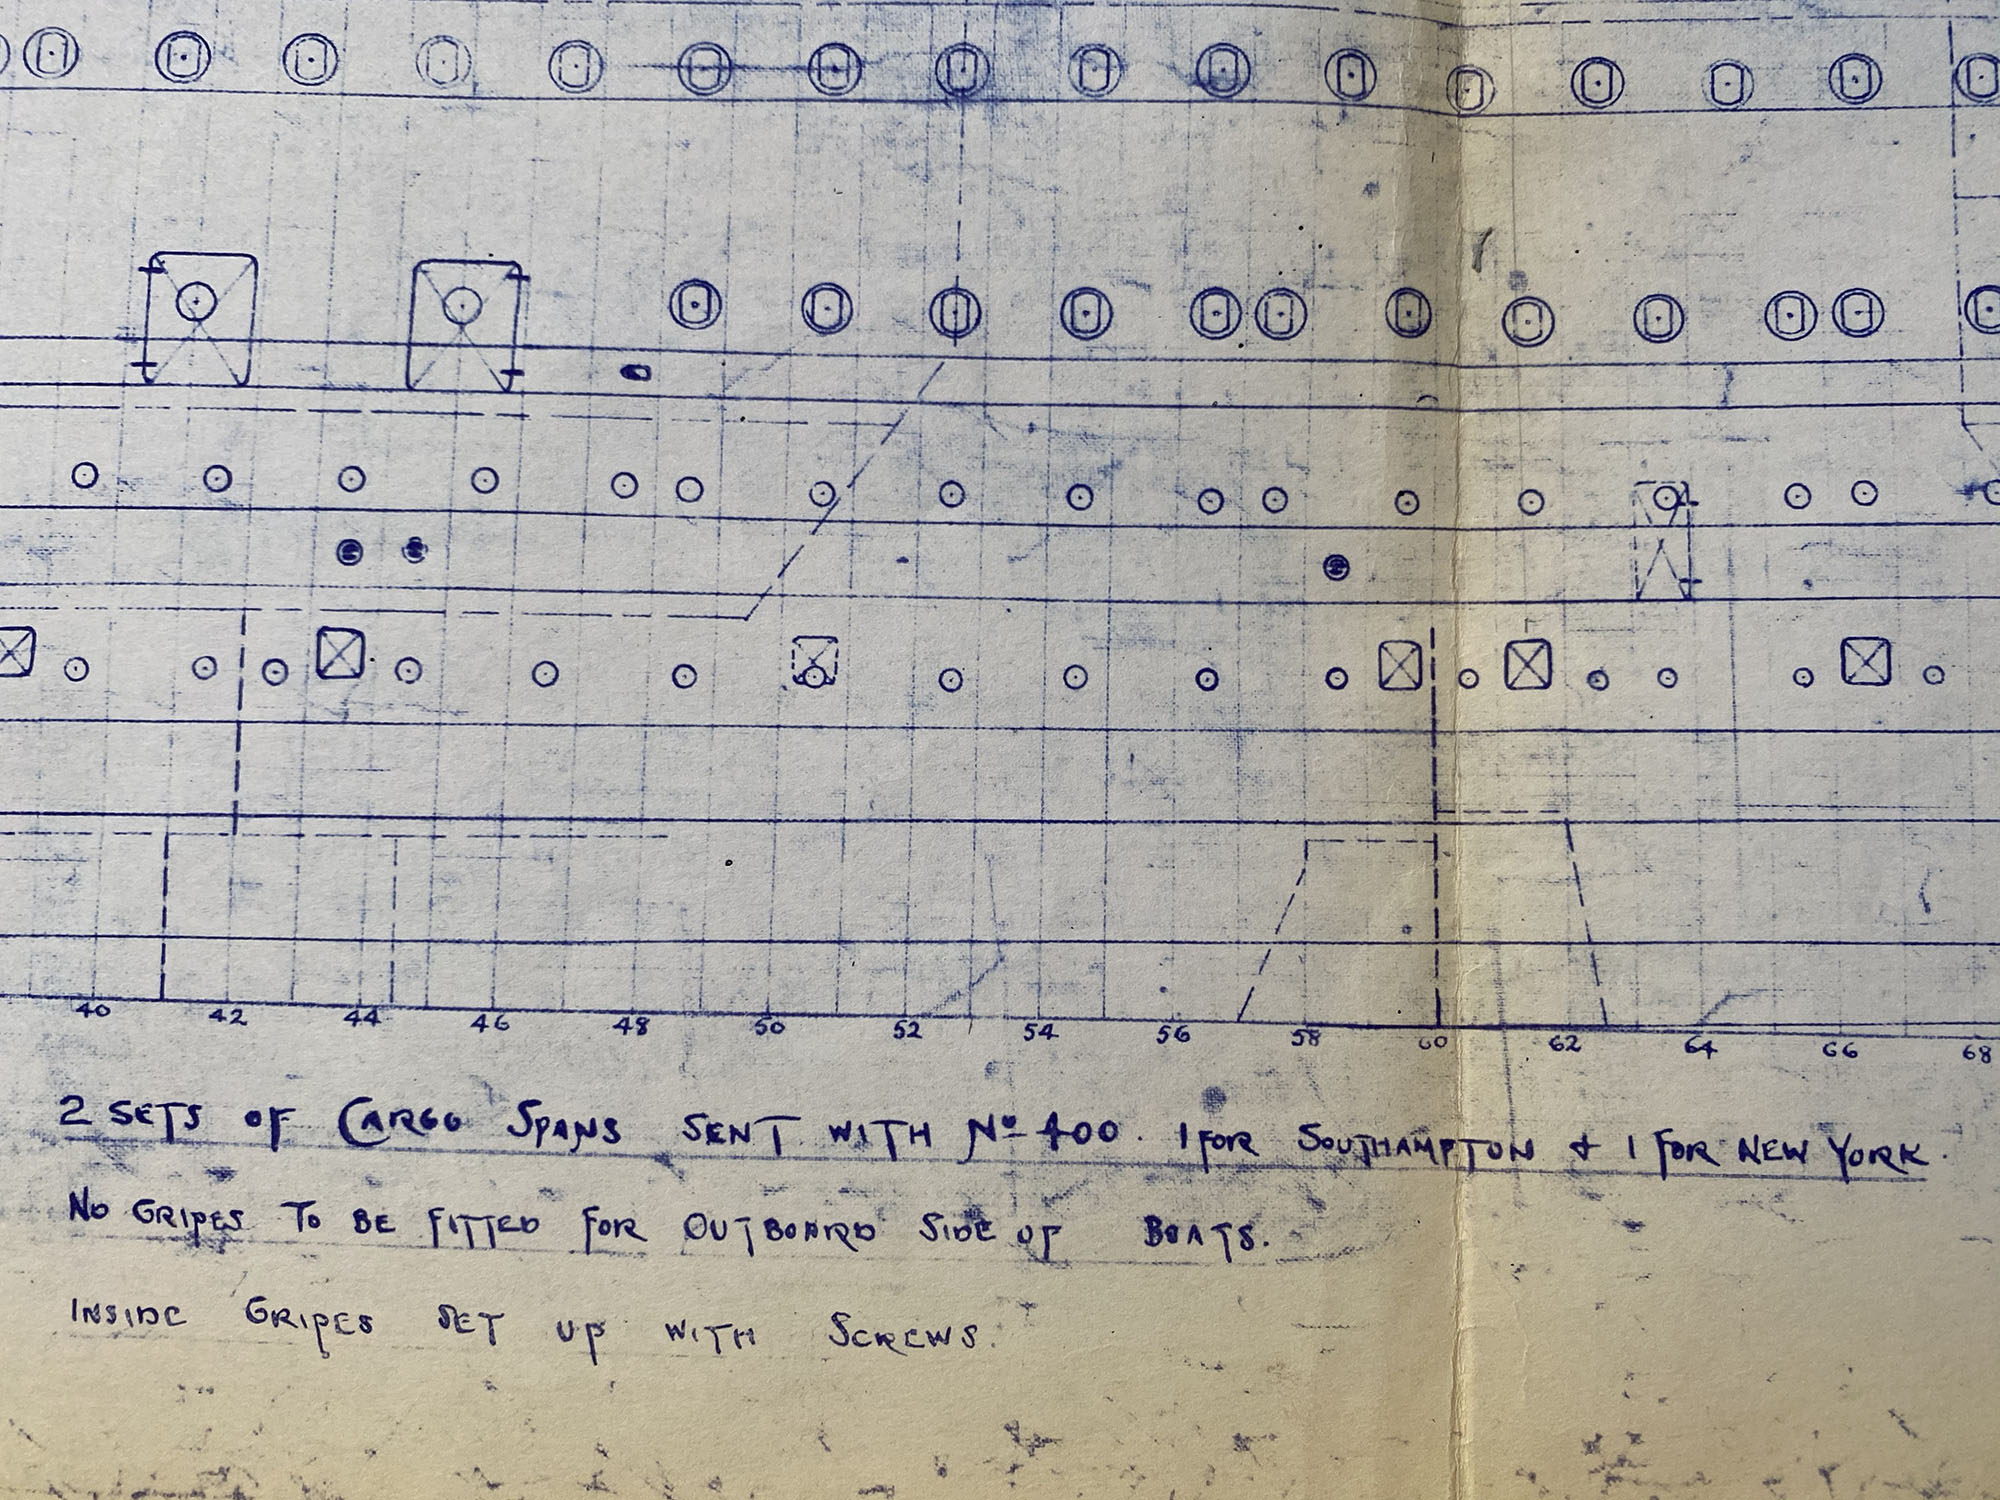 40 42 44 46 48 50 52 54 56 58 60 62 64 66 68
2 SETS OF CARGO SPANS SENT WITH Nº 400. 1 FOR SOUTHAMPTON & 1 FOR NEW YORK.
NO GRIPES TO BE FITTED FOR OUTBOARD SIDE OF BOATS.
INSIDE GRIPES SET UP WITH SCREWS.